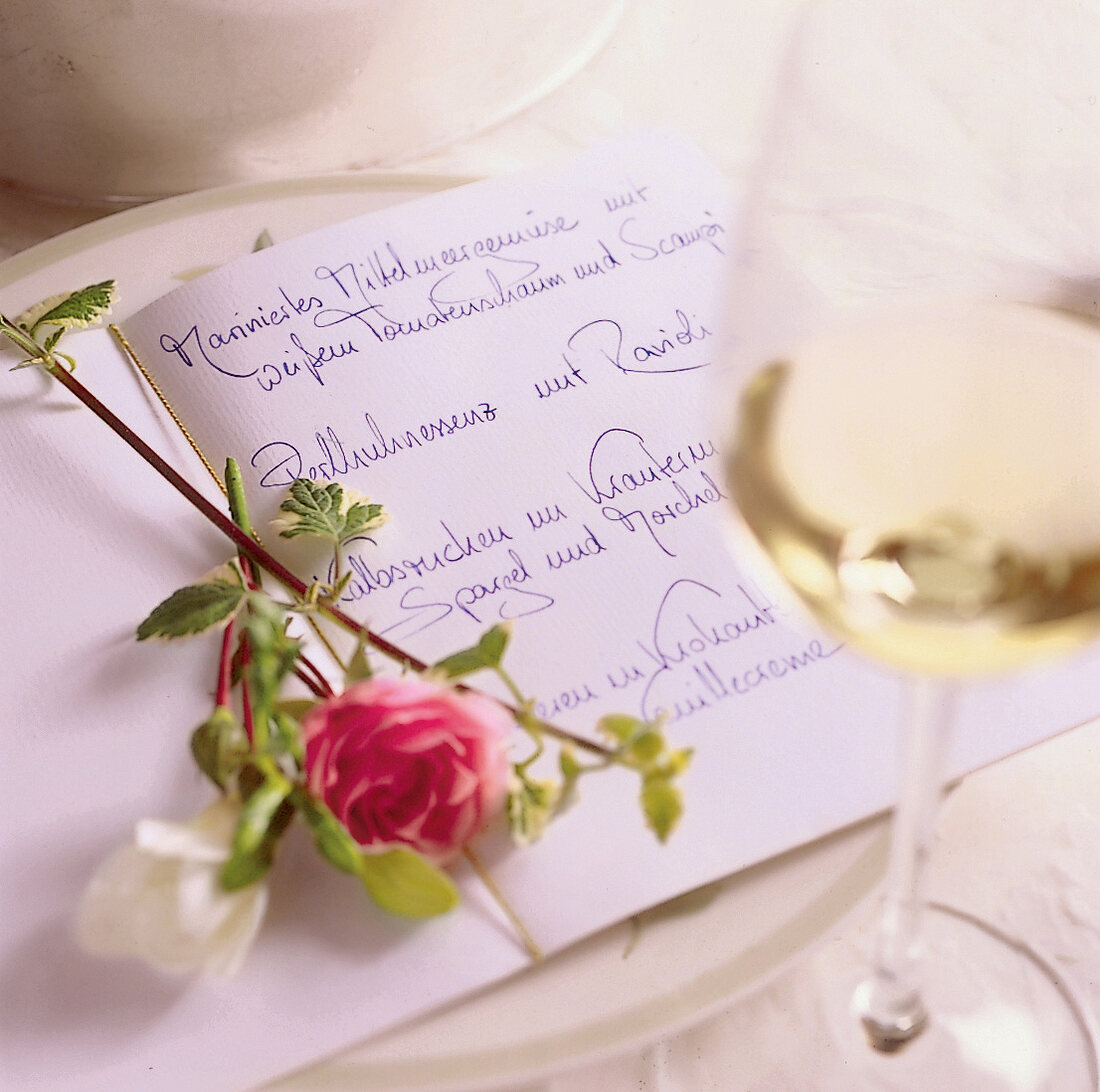 Mariniertes Mittelmeergemüse mit
weißem Tomatenschaum und Scampi
Perlhuhnessenz mit Ravioli
Kalbsrücken im Kräuterm
Spargel und Morchel
eren im Krokant
anillecreme